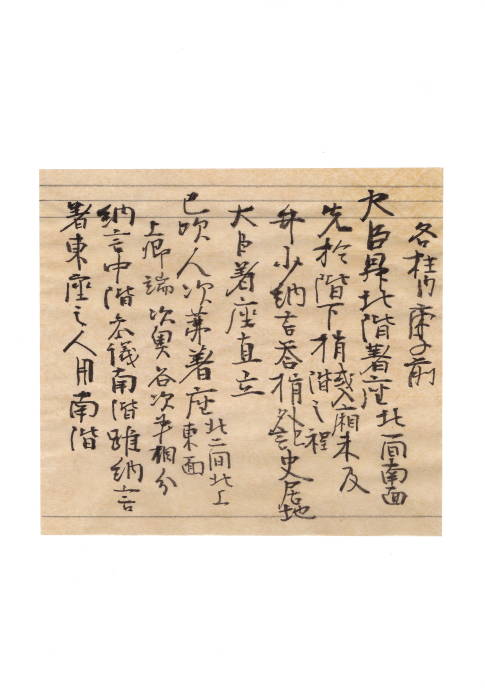 各柱内東子前
大臣昇北階着座北一間南面
先於階下揖淺廂未及階之程
弁少納言荅揖外記史居地
大臣着座直立
已次人次第着座北二間北上東面
上卿端次奥各次第相分
納言中階参議南階雖納言
着東座之人用南階